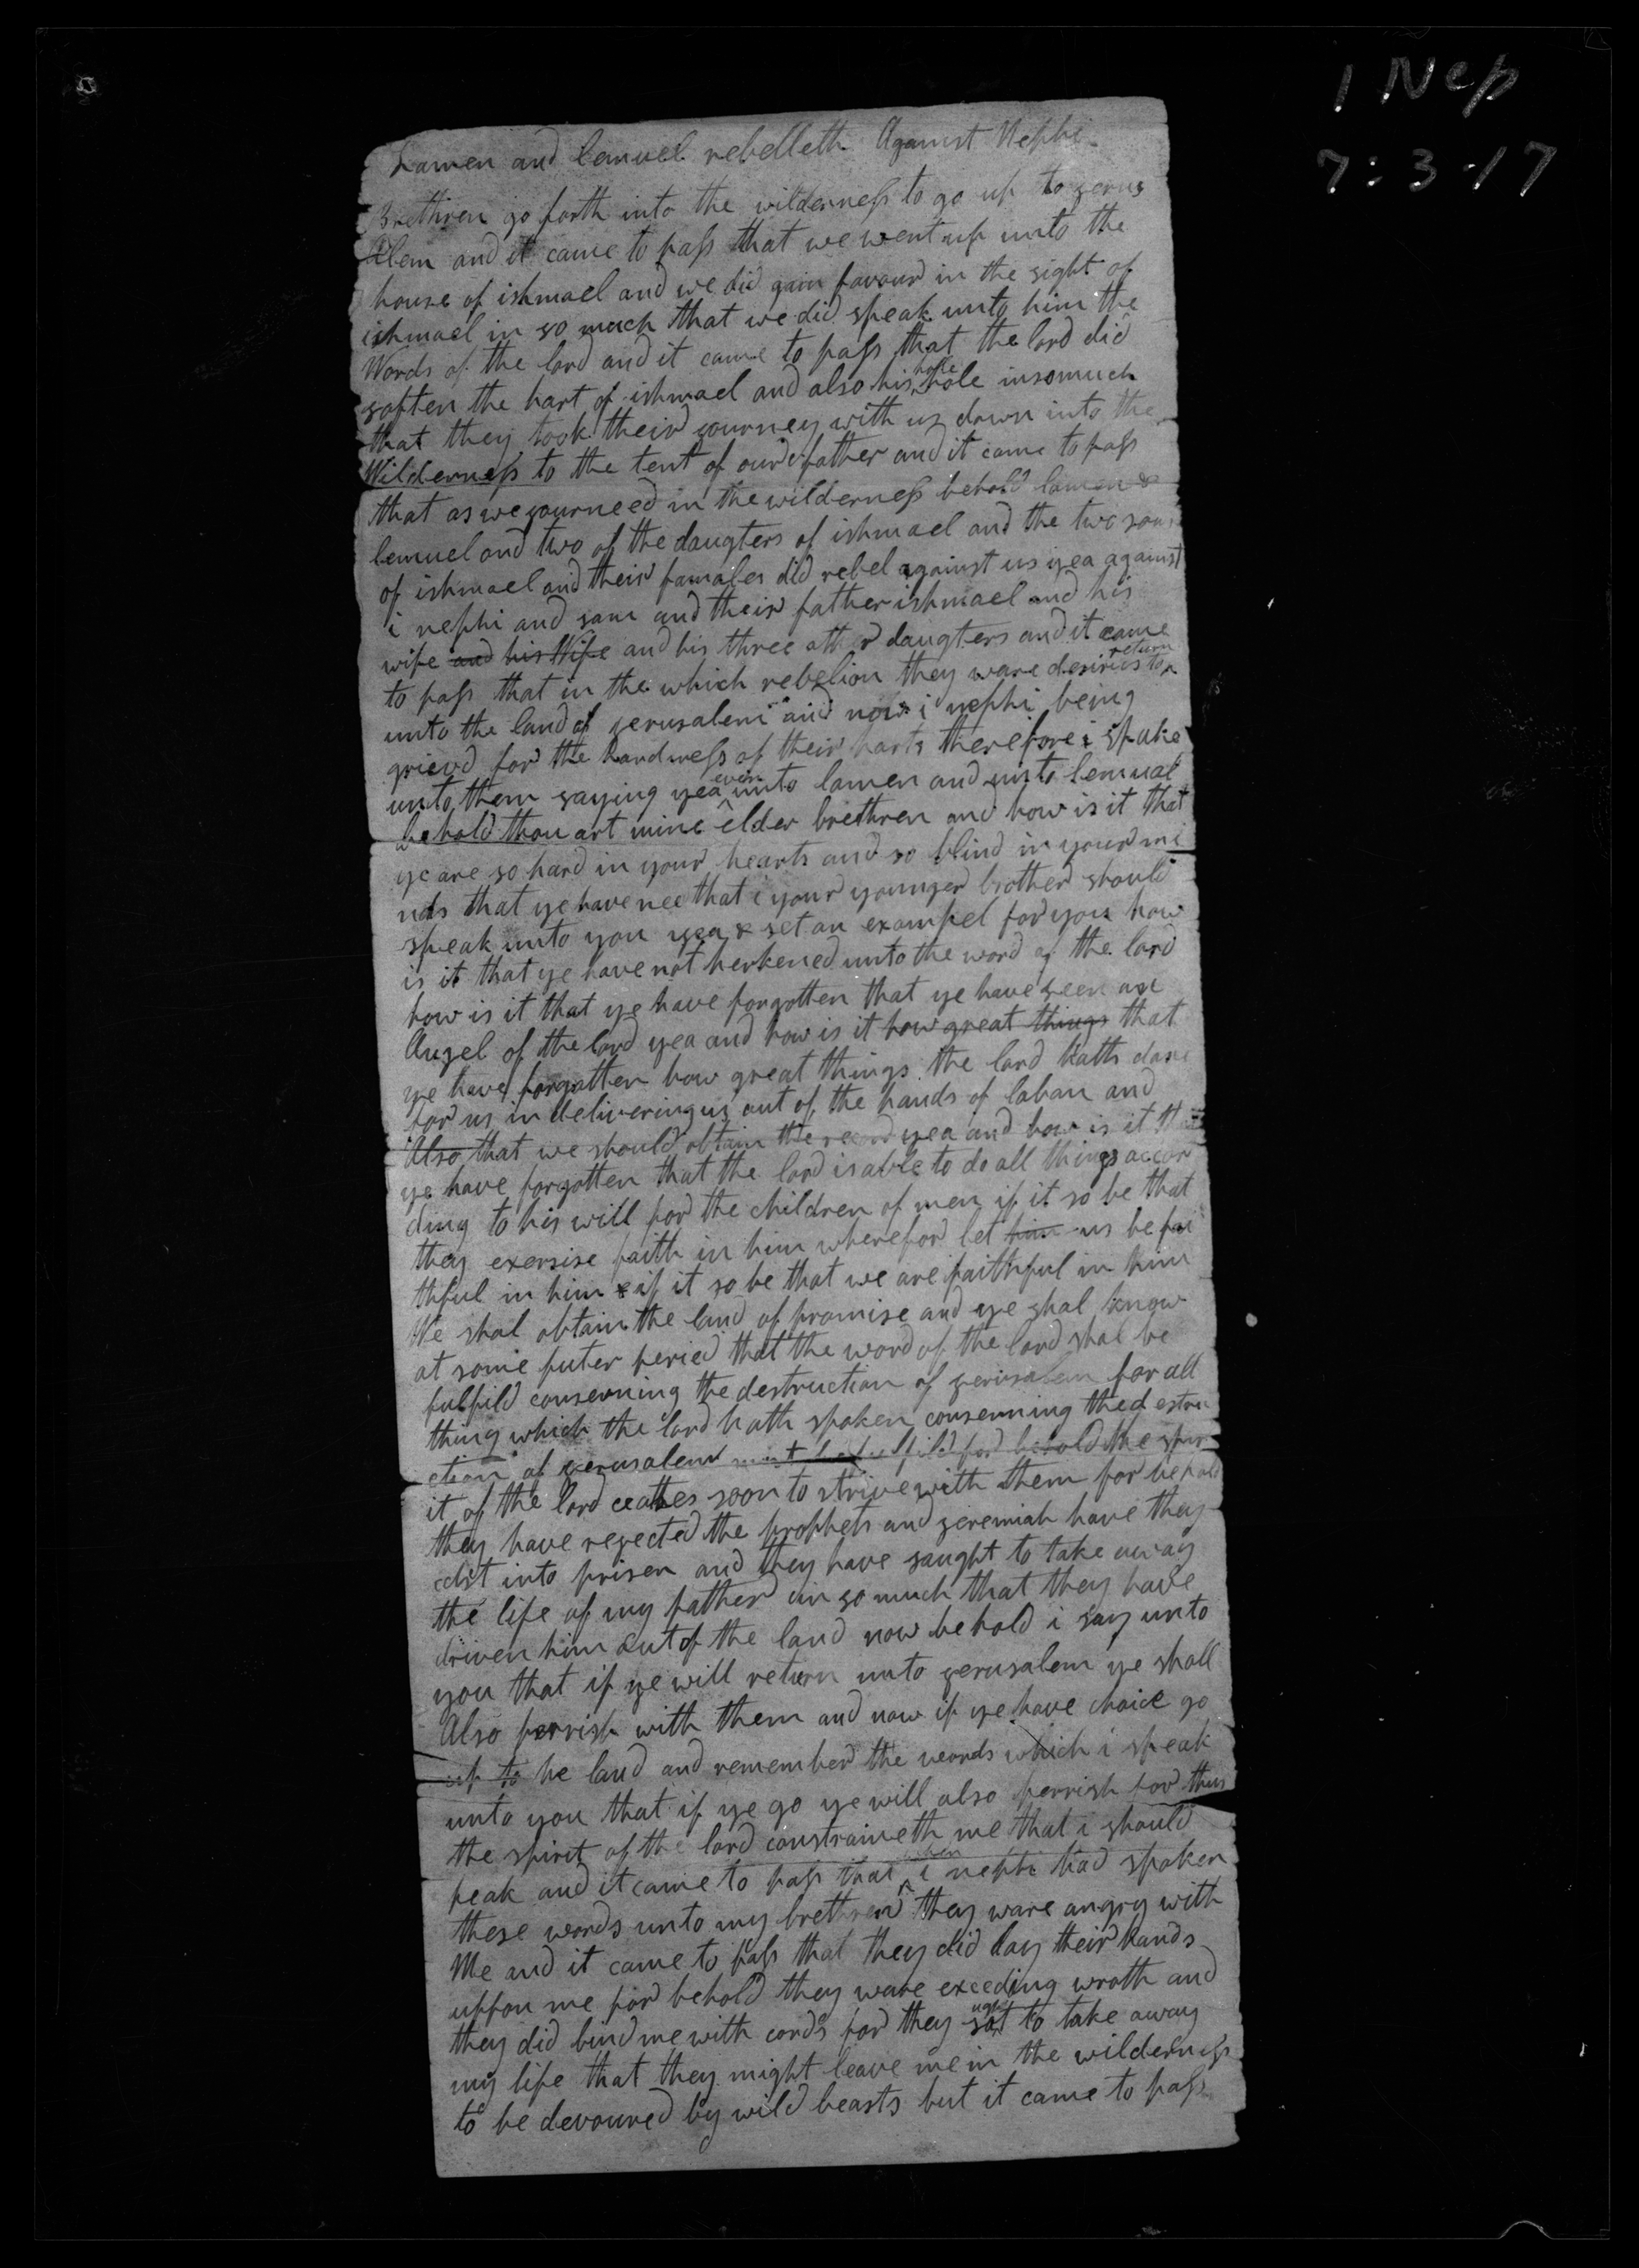 1 Nep
7:3-17
Lamen and Lemuel rebelleth Against Nephi
Brethren go forth into the wilderness to go up to jerus
alem and it came to pass that we went up unto the
house of ishmael and we did gain favour in the sight of
ishmael in so much that we did speak unto him the
Words of the lord and it came to pass that the lord did
soften the hart of ishmael and also his hole hole insomuch
that they took their journey with us down into the
Wilderness to the tent of our father and it came to pass
that as we journeed in the wilderness behold lamen &
lemuel and two of the daugters of ishmael and the two sons
of ishmael and their famales did rebel against us yea against
i nephi and sam and their father ishmael and his
wife and his Wife and his three other daugters and it came
to pass that in the which rebelion they ware desirius to return
unto the land of jerusalem and now i nephi being
grievd for the hardness of their harts therefore i spake
unto them saying yea even unto lamen and unto lemual
behold thou art mine elder brethren and how is it that
ye are so hard in your hearts and so blind in your mi
nds that ye have nee that i your younger brother should
speak unto you yea & set an exampel for you how
is it that ye have not herkened unto the word of the lord
how is it that ye have forgotten that ye have seen an
Angel of the lord yea and how is it how great things that
ye have forgotten how great things the lord hath done
for us in delivering us out of the hands of laban and
Also that we should obtain the record yea and how is it that
ye have forgotten that the lord is able to do all things accor
ding to his will for the children of men if it so be that
they exersise faith in him wherefor let him us be fai
thful in him & if it so be that we are faithful in him
We shal obtain the land of promise and ye shal know
at some futer period that the word of the lord shal be
fulfild conserning the destruction of jerusalem for all
thing which the lord hath spoken conserning the destru
ction of jerusalem must be fulfild for behold the spir
it of the lord ceases soon to strive with them for behold
they have rejected the prophets and jeremiah have they
cast into prisen and they have saught to take away
the life of my father in so much that they have
driven him out of the land now behold i say unto
you that if ye will return unto jerusalem ye shall
Also perrish with them and now if ye have choice go
up to he land and remember the words which i speak
unto you that if ye go ye will also perrish for thus
the spirit of the lord constraineth me that i should
peak and it came to pass that when i nephi had spoken
these words unto my brethren they ware angry with
Me and it came to pass that they did lay their hands
uppon me for behold they ware exceding wroth and
they did bind me with cords for they saught to take away
my life that they might leave me in the wilderness
to be devoured by wild beasts but it came to pass